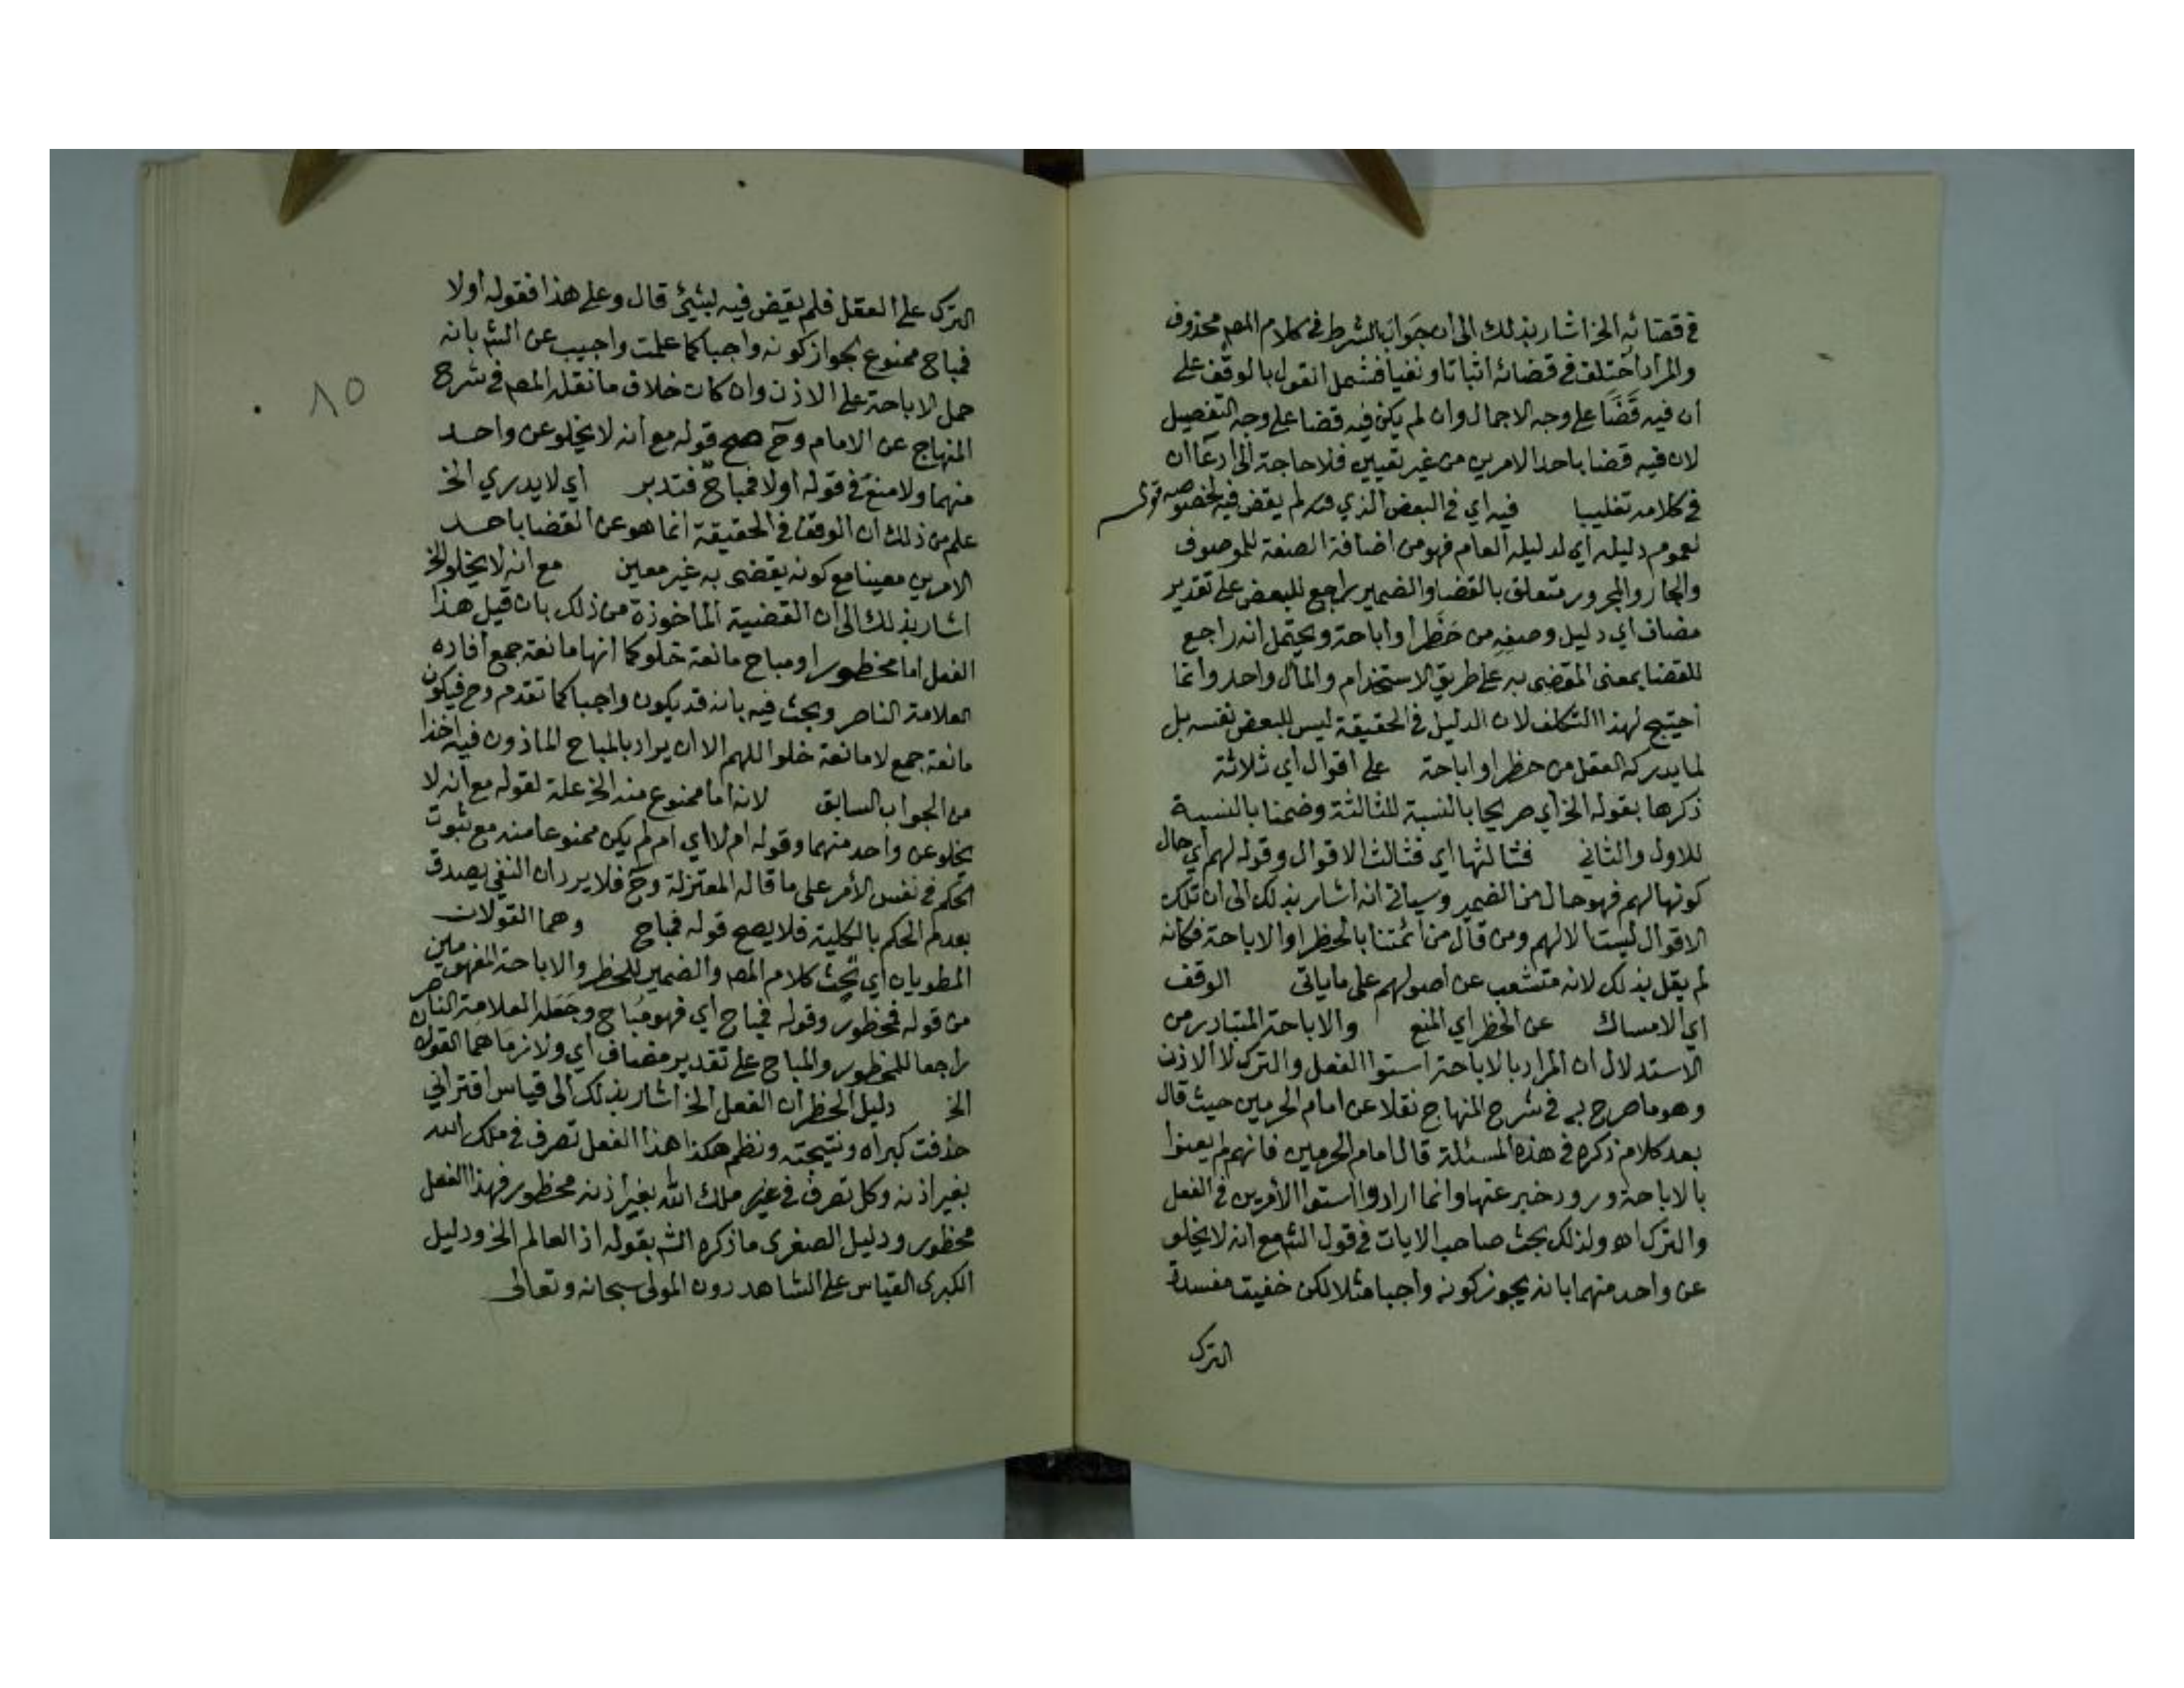 في قضائه الخ اشار بذلك الى ان جواب الشرط في كلام المصـ محذوف
والمراد اختلف في قضائه اثباتا ونفيا فشمل القول بالوقف على
أن فيه قضا على وجه الاجمال وان لم يكن فيه قضا على وجه التفصيل
لان فيه قضا باحد الامرين من غير تعيين فلا حاجة الى ادعا ان
في كلامه تغليبا فيه اي في البعض الذي لم يقض فيه لخصوصه قوله
لعموم دليله اي لدليله العام فهو من اضافة الصفة للموصوف
والجار والمجرور متعلق بالقضا والضمير راجع للبعض على تقدير
مضاف اي دليل وصفه من حظر او اباحة ويحتمل انه راجع
للقضا بمعنى المقضى به على طريق الاستخدام والمآل واحد وانما
احتيج لهذا التكلف لان الدليل في الحقيقة ليس للبعض نفسه بل
لما يدركه العقل من حظر او اباحة على اقوال اي ثلاثة
ذكرها بقوله الخ اي صريحا بالنسبة للثالثة وضمنا بالنسبة
للاول والثاني فثالثها اي فثالث الاقوال وقوله لهم اي حال
كونها لهم فهو حال من الضمير وسياتي انه اشار بذلك الى ان تلك
الاقوال ليست الا لهم ومن قال من ائمتنا بالحظر او الاباحة فكانه
لم يقل بذلك لانه متشعب عن اصولهم على ما ياتى الوقف
اي الامساك عن الحظر اي المنع والاباحة المتبادر من
الاستدلال ان المراد بالاباحة استوا الفعل والترك لا الاذن
وهو ما صرح به في شرح المنهاج نقلا عن امام الحرمين حيث قال
بعد كلام ذكره في هذه المسئلة قال امام الحرمين فانهم لم يعنوا
بالاباحة ورود خبر عنها وانما ارادوا استوا الأمرين في الفعل
والترك اه ولذلك بحث صاحب الايات في قول الشـ مع انه لا يخلو
عن واحد منهما بانه يجوز كونه واجبا مثلا لكن خفيت مفسدة
الترك
الترك على العقل فلم يقض فيه بشيئ قال وعلى هذا فقوله أولا
فمباح ممنوع لجواز كونه واجبا كما علمت واجيب عن الشـ بانه
حمل الاباحة على الاذن وان كان خلاف ما نقله المصـ في شرح
٨٥
المنهاج عن الامام وح صح قوله مع أنه لا يخلو عن واحد
منهما ولا منع في قوله أولا فمباح فتدبر أي لا يدري الخ
علم من ذلك ان الوقف في الحقيقة انما هو عن القضا باحد
الامرين معينا مع كونه يقضى به غير معين مع انه لا يخلو الخ
اشار بذلك الى ان القضية الماخوذة من ذلك بان قيل هذا
الفعل اما محظور او مباح مانعة خلو كما انها مانعة جمع أفاده
العلامة الناصر وبحث فيه بانه قد يكون واجبا كما تقدم وح فيكون
مانعة جمع لا مانعة خلو اللهم الا ان يراد بالمباح الماذون فيه اخذا
من الجواب السابق لانه اما ممنوع منه الخ علة لقوله مع انه لا
يخلو عن واحد منهما وقوله ام لا اي ام لم يكن ممنوعا منه مع ثبوت
الحكم في نفس الأمر على ما قاله المعتزلة وح فلا يرد ان النفي يصدق
بعدم الحكم بالكلية فلا يصح قوله فمباح وهما القولان
المطويان اي تحت كلام المصـ والضمير للحظر والاباحة المفهومين
من قوله فمحظور وقوله فمباح أي فهو مباح وجعله العلامة الناصر
راجعا للمحظور والمباح على تقدير مضاف أي ولازما هما القولان
الخ دليل الحظر ان الفعل الخ اشار بذلك الى قياس اقتراني
حذفت كبراه ونتيجته ونظمه هكذا هذا الفعل تصرف في ملك الله
بغير اذنه وكل تصرف في غير ملك الله بغير اذنه محظور فهذا الفعل
محظور ودليل الصغرى ما ذكره الشـ بقوله اذ العالم الخ ودليل
الكبرى القياس على الشاهد دون المولى سبحانه وتعالى